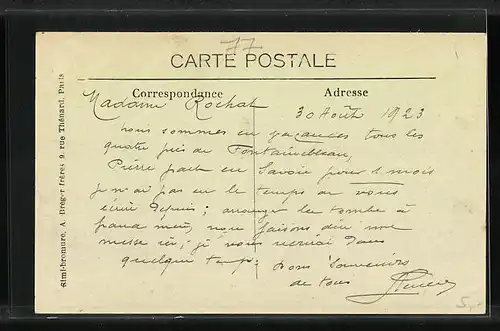 77
CARTE POSTALE
Correspondance Adresse
Madame Rochat
30 Août 1923
nous sommes en vacances tous les
quatre près de Fontainebleau,
Pierre part en Savoie pour 1 mois
je n'ai pas eu le temps de vous
écrire depuis; arranger la tombe à
grand mère, nous faisons dire une
messe ici; je vous écrirai dans
quelque temps
bons souvenirs
de tous
Simi-bromure, A. Breger frères 9, rue Thénard, Paris
5,-